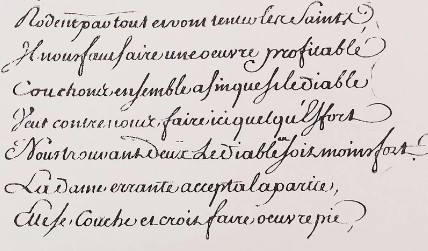 Rodent partout et vont tenter les Saints,
Il nous faut faire une oeuvre profitable
Couchons ensemble afin que si le diable
Veut contre nous, faire ici quelqu'Effort
Nous trouvant deux Le diable en soit moins fort.
La Dame errante accepta la partie,
Elle se Couche et croit faire oeuvre pie,